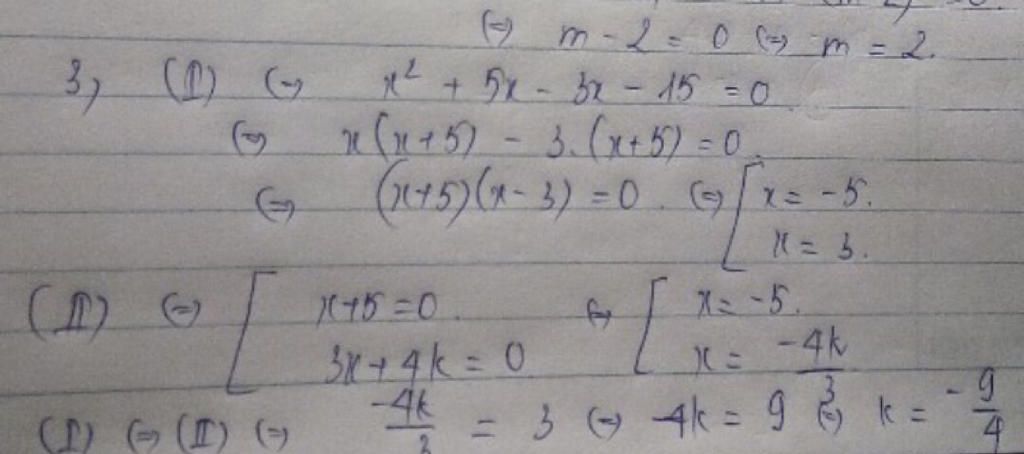 (=) m - 2 = 0 (=) m = 2.
3, (I) (=) x² + 5x - 3x - 15 = 0
(=) x(x+5) - 3.(x+5) = 0
(=) (x+5)(x-3) = 0. (=) [ x = -5.
x = 3.
(II) (=) [ x+5 = 0. (=) [ x = -5.
3x + 4k = 0 x = -4k/3
(I) (=) (II) (=) -4k/3 = 3 (=) -4k = 9 (=) k = -9/4